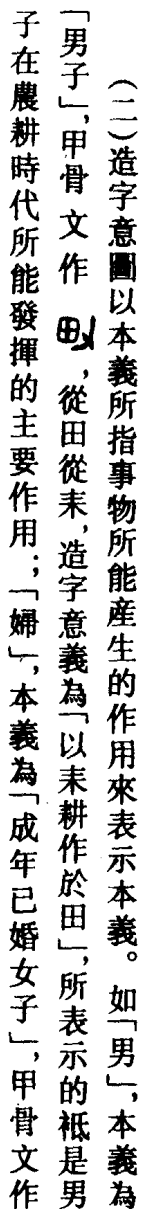 (二)造字意圖以本義所指事物所能産生的作用來表示本義。如「男」,本義為
「男子」,甲骨文作 ,從田從耒,造字意義為「以耒耕作於田」,所表示的祗是男
子在農耕時代所能發揮的主要作用;「婦」,本義為「成年已婚女子」,甲骨文作